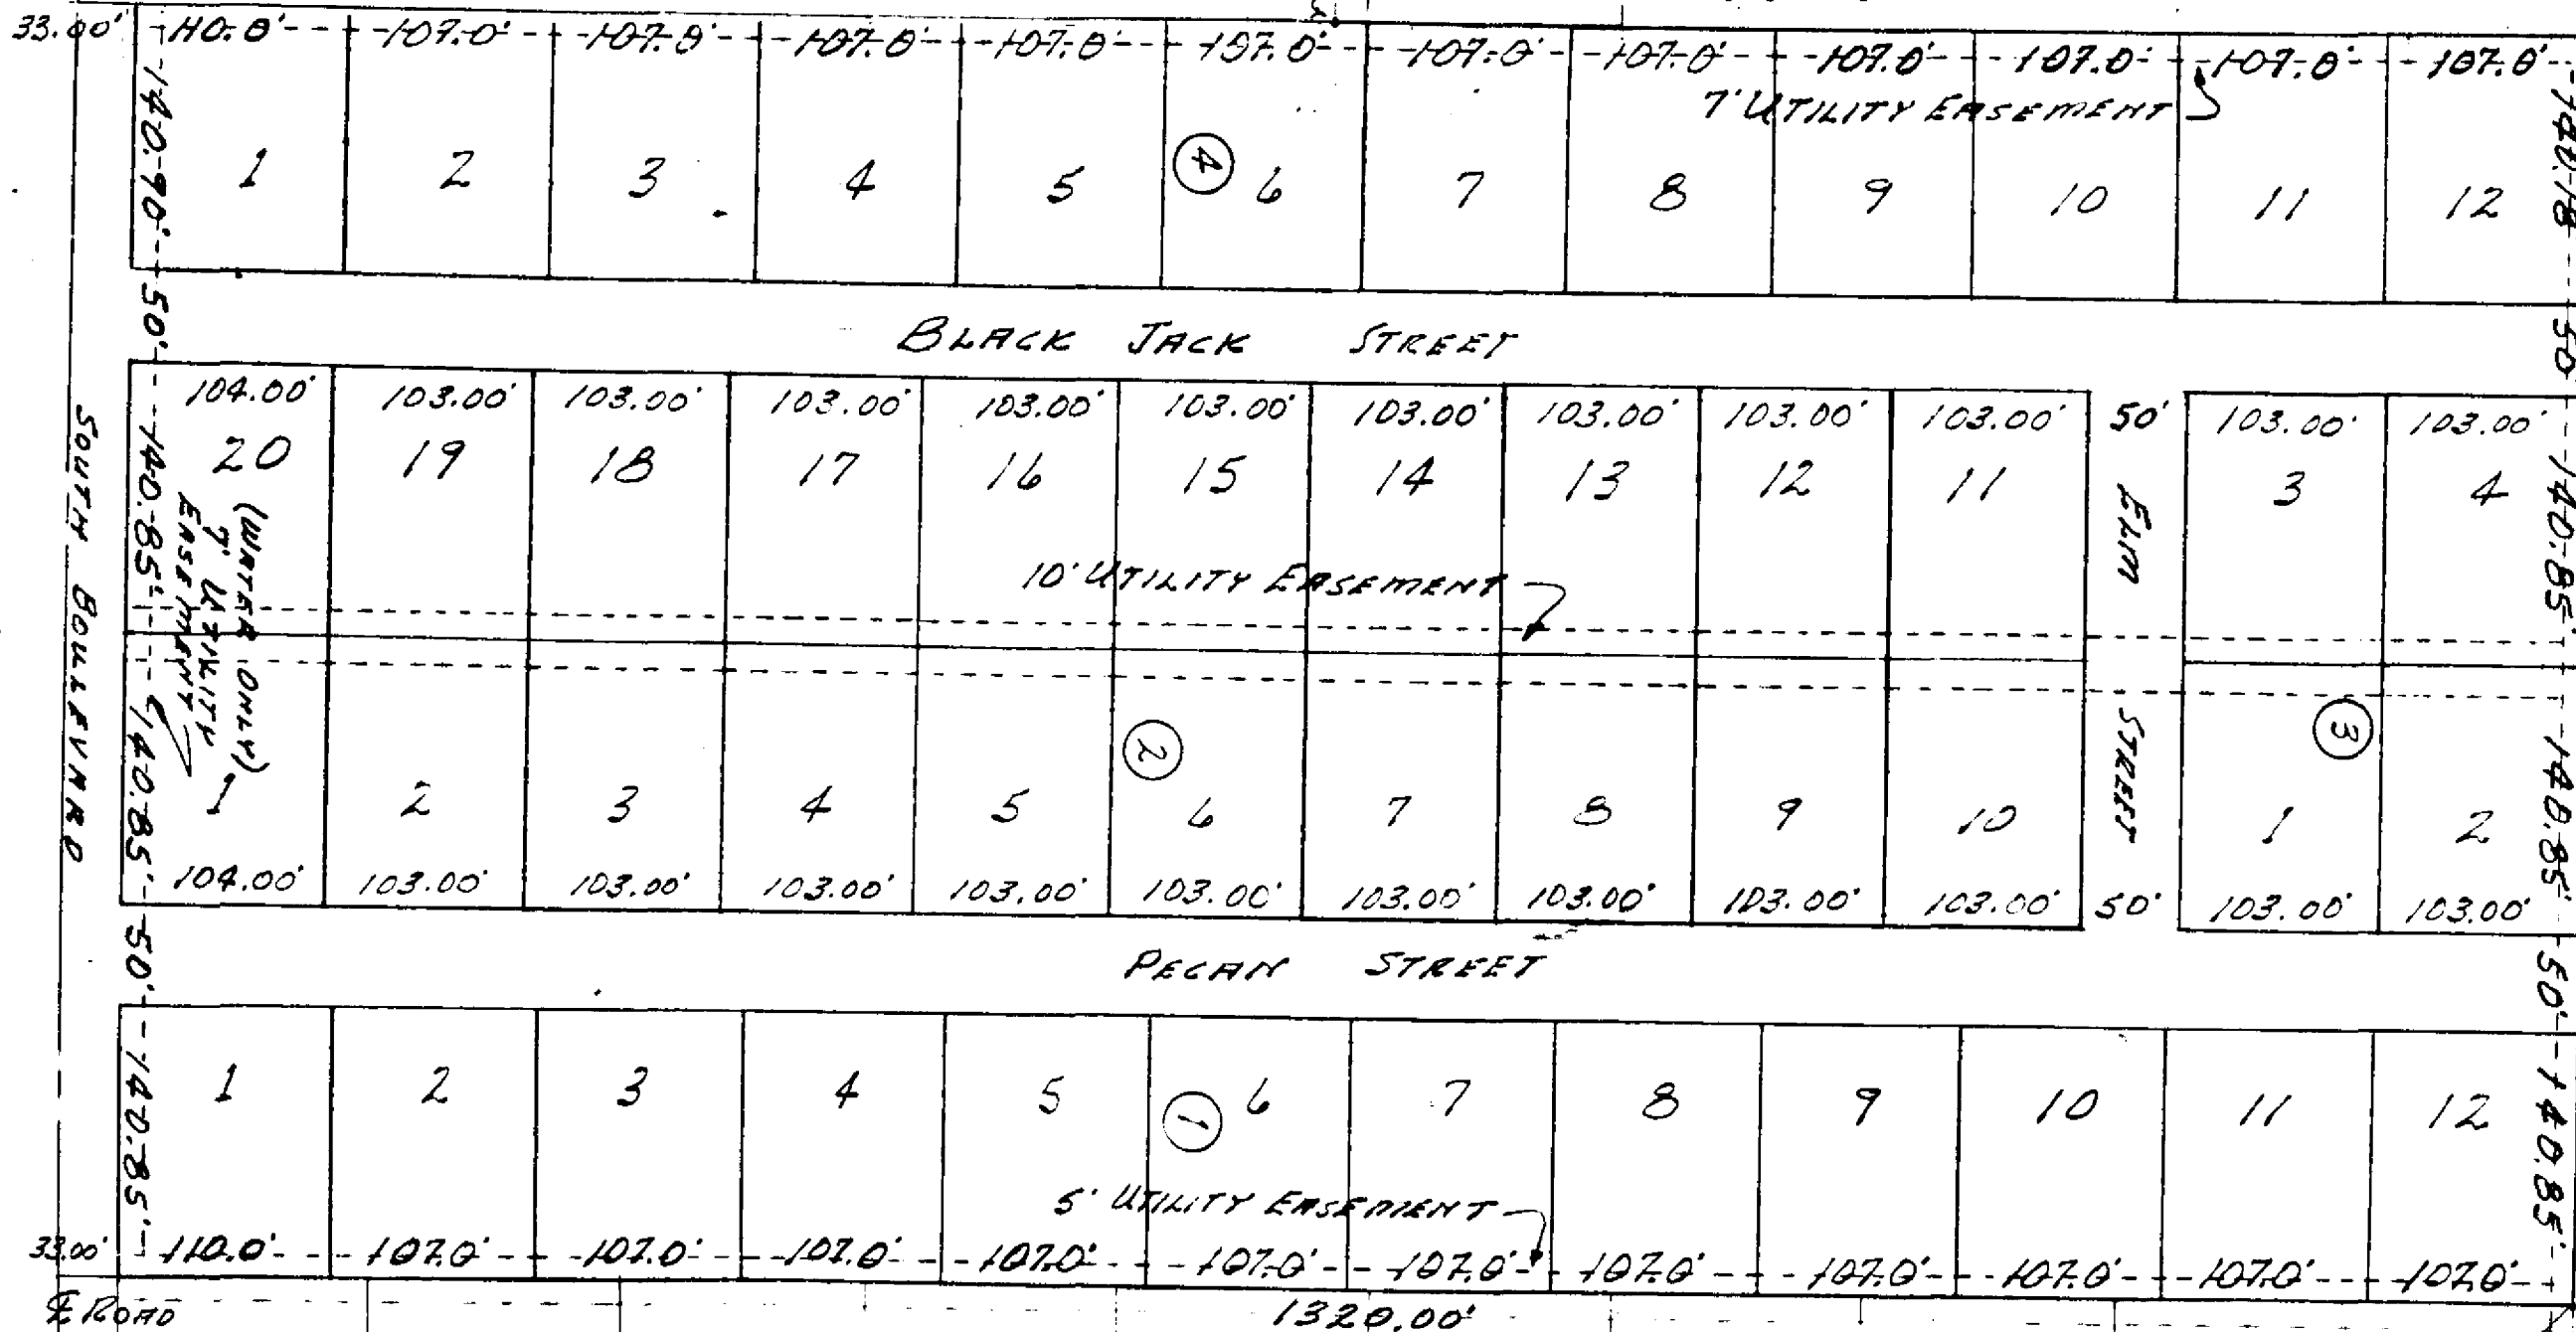 33.00' 110.0' 107.0' 107.0' 107.0' 107.0' 107.0' 107.0' 107.0' 107.0' 107.0' 107.0' 107.0'
7' UTILITY EASEMENT
140.90' 140.18
1 2 3 4 5 4 6 7 8 9 10 11 12
50' 50'
BLACK JACK STREET
104.00' 103.00' 103.00' 103.00' 103.00' 103.00' 103.00' 103.00' 103.00' 103.00' 50' 103.00' 103.00'
20 19 18 17 16 15 14 13 12 11 3 4
140.85' 140.85'
SOUTH BOULEVARD
(WATER ONLY)
7' UTILITY
EASEMENT
10' UTILITY EASEMENT
ELM STREET
2 3
140.85' 140.85'
1 2 3 4 5 6 7 8 9 10 1 2
104.00' 103.00' 103.00' 103.00' 103.00' 103.00' 103.00' 103.00' 103.00' 103.00' 50' 103.00' 103.00'
50' 50'
PECAN STREET
1 2 3 4 5 1 6 7 8 9 10 11 12
140.85' 140.85'
5' UTILITY EASEMENT
33.00' 110.0' 107.0' 107.0' 107.0' 107.0' 107.0' 107.0' 107.0' 107.0' 107.0' 107.0' 107.0'
℄ ROAD
1320.00'